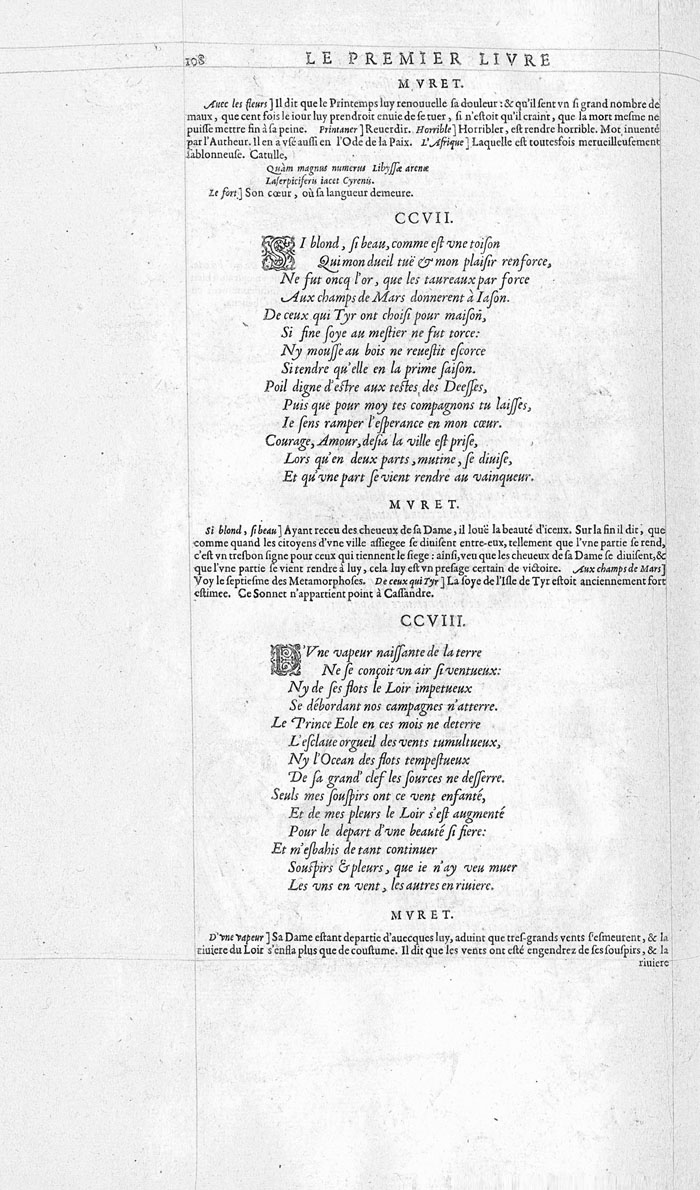 108 LE PREMIER LIVRE
MVRET.
Auec les fleurs] Il dit que le Printemps luy renouuelle sa douleur: & qu'il sent vn si grand nombre de
maux, que cent fois le iour luy prendroit enuie de se tuer, si n'estoit qu'il craint, que la mort mesme ne
puisse mettre fin à sa peine. Printaner] Reuerdir. Horrible] Horribler, est rendre horrible. Mot inuenté
par l'Autheur. Il en a vsé aussi en l'Ode de la Paix. L'Afrique] Laquelle est toutesfois merueilleusement
sablonneuse. Catulle,
Quàm magnus numerus Libyssæ arenæ
Laserpiciferis iacet Cyrenis.
Le fort] Son cœur, où sa langueur demeure.
CCVII.
SI blond, si beau, comme est vne toison
Qui mon dueil tuë & mon plaisir renforce,
Ne fut oncq l'or, que les taureaux par force
Aux champs de Mars donnerent à Iason.
De ceux qui Tyr ont choisi pour maison,
Si fine soye au mestier ne fut torce:
Ny mousse au bois ne reuestit escorce
Si tendre qu'elle en la prime saison.
Poil digne d'estre aux testes des Deesses,
Puis que pour moy tes compagnons tu laisses,
Ie sens ramper l'esperance en mon cœur.
Courage, Amour, desia la ville est prise,
Lors qu'en deux parts, mutine, se diuise,
Et qu'vne part se vient rendre au vainqueur.
MVRET.
Si blond, si beau] Ayant receu des cheueux de sa Dame, il louë la beauté d'iceux. Sur la fin il dit, que
comme quand les citoyens d'vne ville assiegee se diuisent entre-eux, tellement que l'vne partie se rend,
c'est vn tresbon signe pour ceux qui tiennent le siege: ainsi, veu que les cheueux de sa Dame se diuisent, &
que l'vne partie se vient rendre à luy, cela luy est vn presage certain de victoire. Aux champs de Mars]
Voy le septiesme des Metamorphoses. De ceux qui Tyr] La soye de l'Isle de Tyr estoit anciennement fort
estimee. Ce Sonnet n'appartient point à Cassandre.
CCVIII.
D'Vne vapeur naissante de la terre
Ne se conçoit vn air si ventueux:
Ny de ses flots le Loir impetueux
Se débordant nos campagnes n'atterre.
Le Prince Eole en ces mois ne deterre
L'esclaue orgueil des vents tumultueux,
Ny l'Ocean des flots tempestueux
De sa grand' clef les sources ne desserre.
Seuls mes souspirs ont ce vent enfanté,
Et de mes pleurs le Loir s'est augmenté
Pour le depart d'vne beauté si fiere:
Et m'esbahis de tant continuer
Souspirs & pleurs, que ie n'ay veu muer
Les vns en vent, les autres en riuiere.
MVRET.
D'vne vapeur] Sa Dame estant departie d'auecques luy, aduint que tres-grands vents s'esmeurent, & la
riuiere du Loir s'enfla plus que de coustume. Il dit que les vents ont esté engendrez de ses souspirs, & la
riuiere